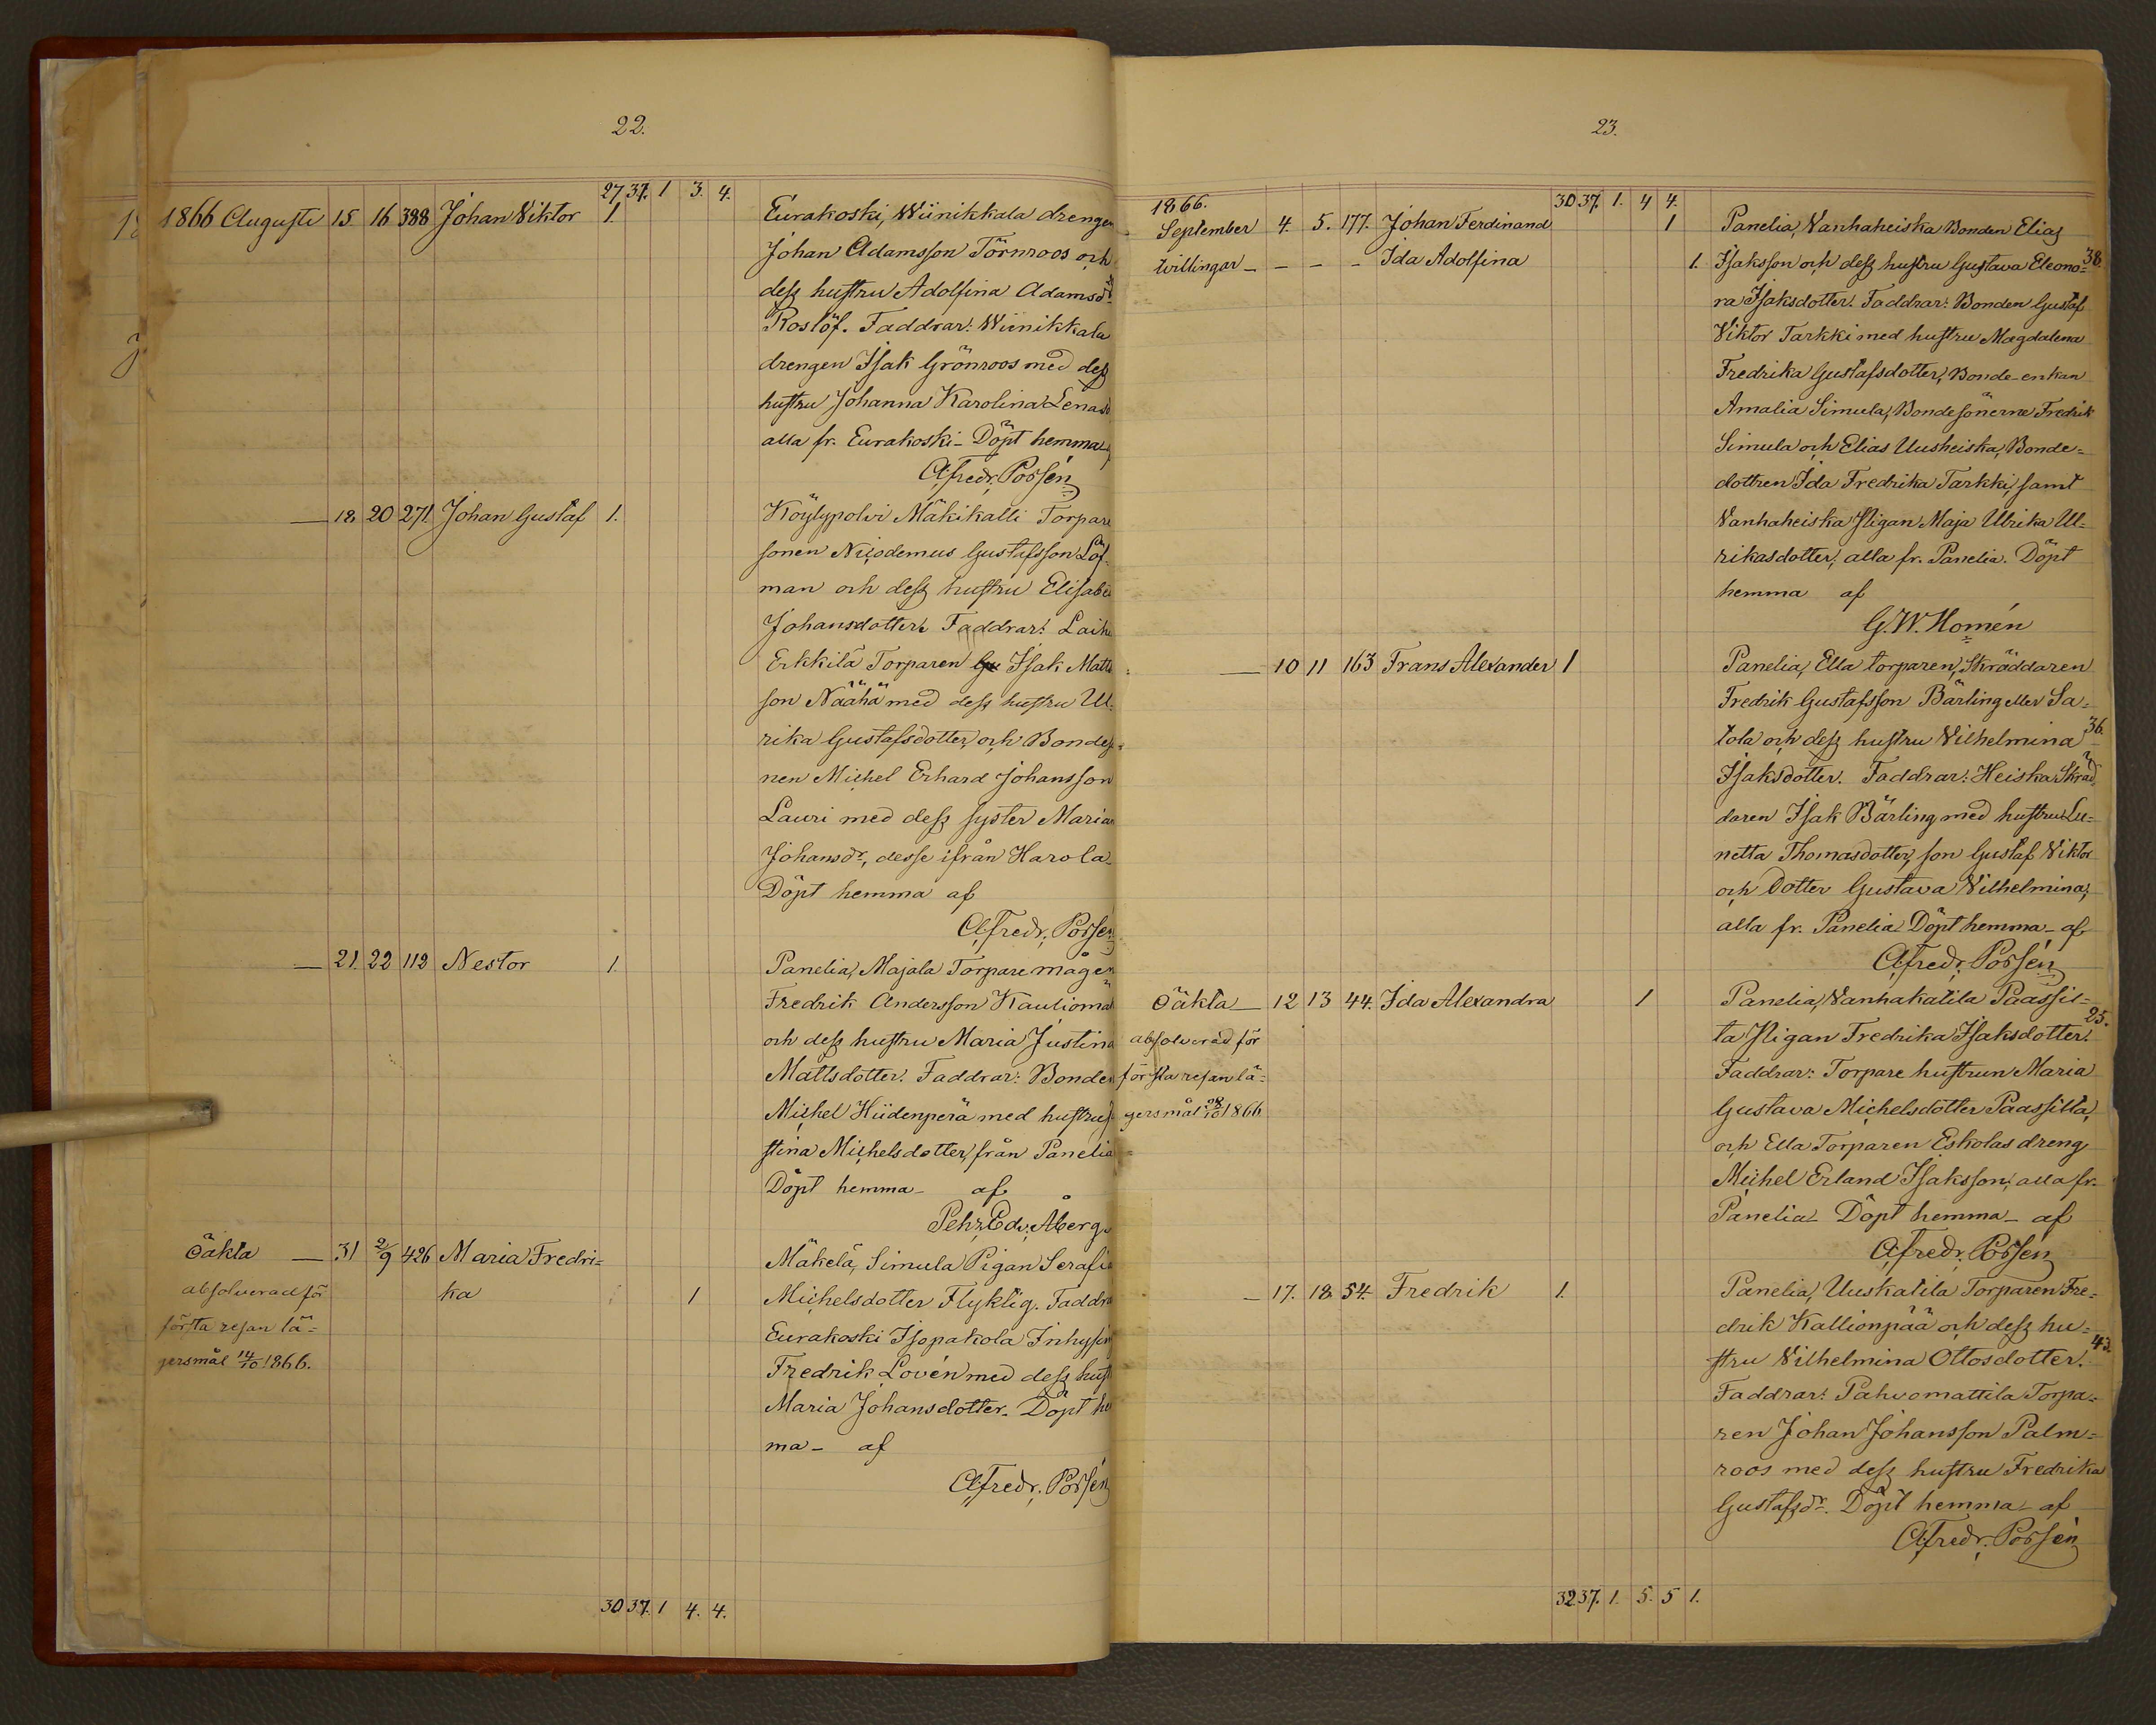 22.
27 37. 1 3. 4.
1866 Augusti 15. 16 388 Johan Viktor 1. Eurakoski, Wiinikkala drengen
Johan Adamsson Törnroos och
dess hustru Adolfina Adamsdr
Roslöf. Faddrar: Wiinikkala
drengen Isak Grönroos med dess
hustru Johanna Karolina Lenasd
alla fr. Eurakoski - Döpt hemma af
Alfredr. Porsén
— 18 20 271. Johan Gustaf 1. Köylypolvi Mäkikalli Torpare
sonen Nicodemus Gustafsson Löf-
man och dess hustru Elisabe
Johansdotter. Faddrar: Laihe
Erkkilä Torparen Isak Matts
son Näähä med dess hustru Ul-
rika Gustafsdotter och Bondes
nen Michel Erhard Johansson
Lauri med dess syster Maria
Johansdr, desse ifrån Harola -
Döpt hemma af
Alfredr. Porsén
— 21. 22 112 Nestor 1. Panelia, Majala Torpare mågen
Fredrik Andersson Kauliomä
och dess hustru Maria Justina
Mattsdotter. Faddrar: Bonden
Michel Hiidenperä med hustru
stina Michelsdotter, från Panelia
Döpt hemma - af
Pehr Edv. Åberg
Oäkta — 31 2/9 426 Maria Fredri= Mäkelä, Simula Pigan Serafi
absolverad för ka 1 Michelsdotter Flyktig. Faddra
första resan lä= Eurakoski Isopakola Inhysin
gersmål 14/10 1866. Fredrik Lovén med dess hust
Maria Johansdotter - Döpt he
ma - af
Alfredr. Porsén
30 37. 1 4. 4.
23.
1866. 30 37. 1. 4 4.
September 4. 5. 177. Johan Ferdinand 1 Panelia, Vanhaheiska Bonden Elias
tvillingar - - - - Ida Adolfina 1. Isaksson och dess hustru Gustava Eleono= 38.
ra Isaksdotter. Faddrar: Bonden Gustaf
Viktor Tarkki med hustru Magdalena
Fredrika Gustafsdotter, Bonde-enkan
Amalia Simula, Bondesönerne Fredrik
Simula och Elias Uusheiska, Bonde=
dottren Ida Fredrika Tarkki, samt
Vanhaheiska Pigan Maja Ulrika Ul=
rikasdotter, alla fr. Panelia. Döpt
hemma af
G. W. Homén
— 10 11 163 Frans Alexander 1 Panelia, Ella torparen, Skräddaren
Fredrik Gustafsson Bärling eller Sa=
tola och dess hustru Vilhelmina 36.
Isaksdotter. Faddrar: Heiska Skräd=
daren Isak Bärling med hustru Le=
netta Thomasdotter, son Gustaf Viktor
och Dotter Gustava Vilhelmina,
alla fr. Panelia Döpt hemma - af
Alfredr. Porsén
Oäkta — 12 13 44. Ida Alexandra 1 Panelia, Vanhakatila Paassil=
absolverad för ta Pigan Fredrika Isaksdotter. 25.
första resan lä= Faddrar: Torpare hustrun Maria
gersmål 28/10 1866 Gustava Michelsdotter Paassilta,
och Ella Torparen Eskolas dreng
Michel Erland Isaksson, alla fr.
Panelia - Döpt hemma - af
Alfredr. Porsén
— 17. 18 54. Fredrik 1. Panelia, Uuskatila Torparen Fre=
drik Kallionpää och dess hu=
stru Vilhelmina Ottosdotter. 43.
Faddrar: Pahvomattila Torpa=
ren Johan Johansson Palm=
roos med dess hustru Fredrika
Gustafsdr. Döpt hemma - af
Alfredr. Porsén
32 37. 1. 5. 5 1.